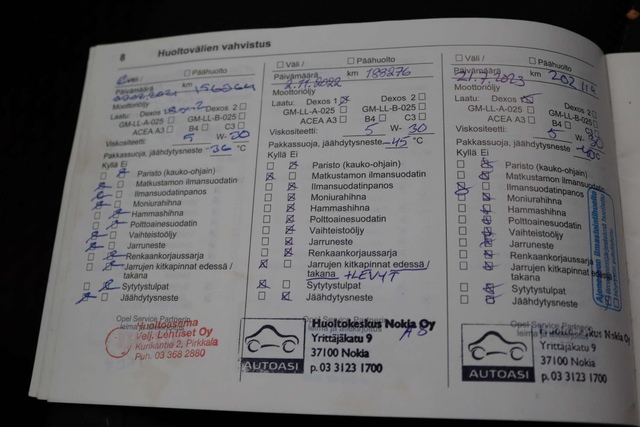 8 Huoltovälien vahvistus
Väli / Päähuolto
Päivämäärä km
Moottoriöljy
Laatu: Dexos 2
GM-LL-A-025 GM-LL-B-025
ACEA A3 B4 C3
Viskositeetti: 5 W- 30
Pakkassuoja, jäähdytysneste -36 °C
Kyllä Ei
Paristo (kauko-ohjain)
Matkustamon ilmansuodatin
Ilmansuodatinpanos
Moniurahihna
Hammashihna
Polttoainesuodatin
Vaihteistoöljy
Jarruneste
Renkaankorjaussarja
Jarrujen kitkapinnat edessä /
takana
Sytytystulpat
Jäähdytysneste
Opel Service Partnerin
leima ja
Huoltoasema
Velj. Lehtiset Oy
Kurikantie 2, Pirkkala
Puh. 03 368 2880
Väli / Päähuolto
Päivämäärä km 188276
2.11.2022
Moottoriöljy
Laatu: Dexos 1 Dexos 2
GM-LL-A-025 GM-LL-B-025
ACEA A3 B4 C3
Viskositeetti: 5 W- 30
Pakkassuoja, jäähdytysneste -45 °C
Kyllä Ei
Paristo (kauko-ohjain)
Matkustamon ilmansuodatin
Ilmansuodatinpanos
Moniurahihna
Hammashihna
Polttoainesuodatin
Vaihteistoöljy
Jarruneste
Renkaankorjaussarja
Jarrujen kitkapinnat edessä /
takana +LEVYT
Sytytystulpat
Jäähdytysneste
Opel Service Partnerin
Huoltokeskus Nokia Oy
Yrittäjäkatu 9
37100 Nokia
p. 03 3123 1700
AUTOASI
Väli / Päähuolto
Päivämäärä km
21.7.2023
Moottoriöljy
Laatu: Dexos
GM-LL-A-025
ACEA A3 B4
Viskositeetti: 5 W- 30
Pakkassuoja, jäähdytysneste °C
Kyllä Ei
Paristo (kauko-ohjain)
Matkustamon ilmansuodatin
Ilmansuodatinpanos
Moniurahihna
Hammashihna
Polttoainesuodatin
Vaihteistoöljy
Jarruneste
Renkaankorjaussarja
Jarrujen kitkapinnat
takana
Sytytystulpat
Jäähdytysneste
Opel Service Partnerin
Nokia Oy
Yrittäjäkatu 9
37100 Nokia
p. 03 3123 1700
AUTOASI